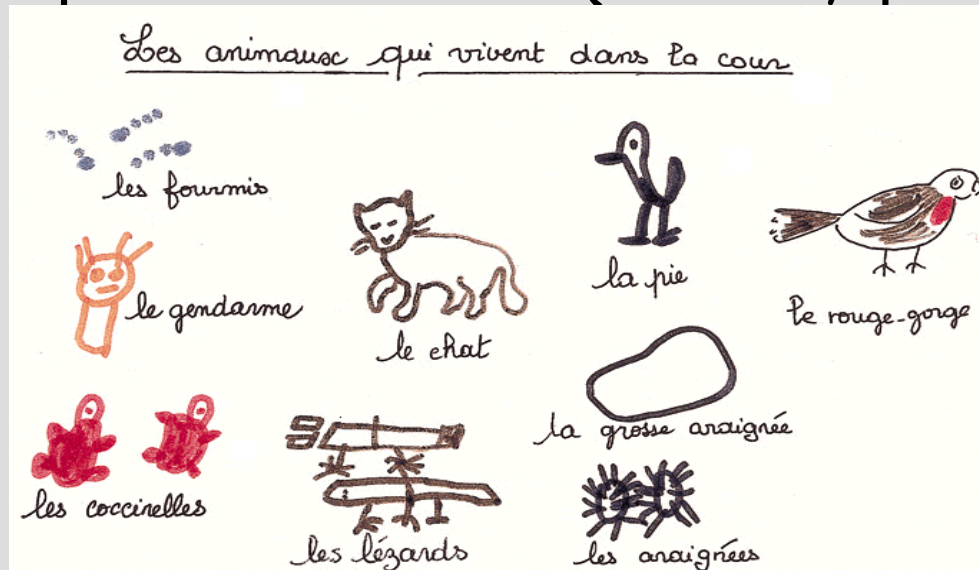 Les animaux qui vivent dans la cour
les fourmis
le gendarme
le chat
la pie
le rouge-gorge
la grosse araignée
les coccinelles
les lézards
les araignées